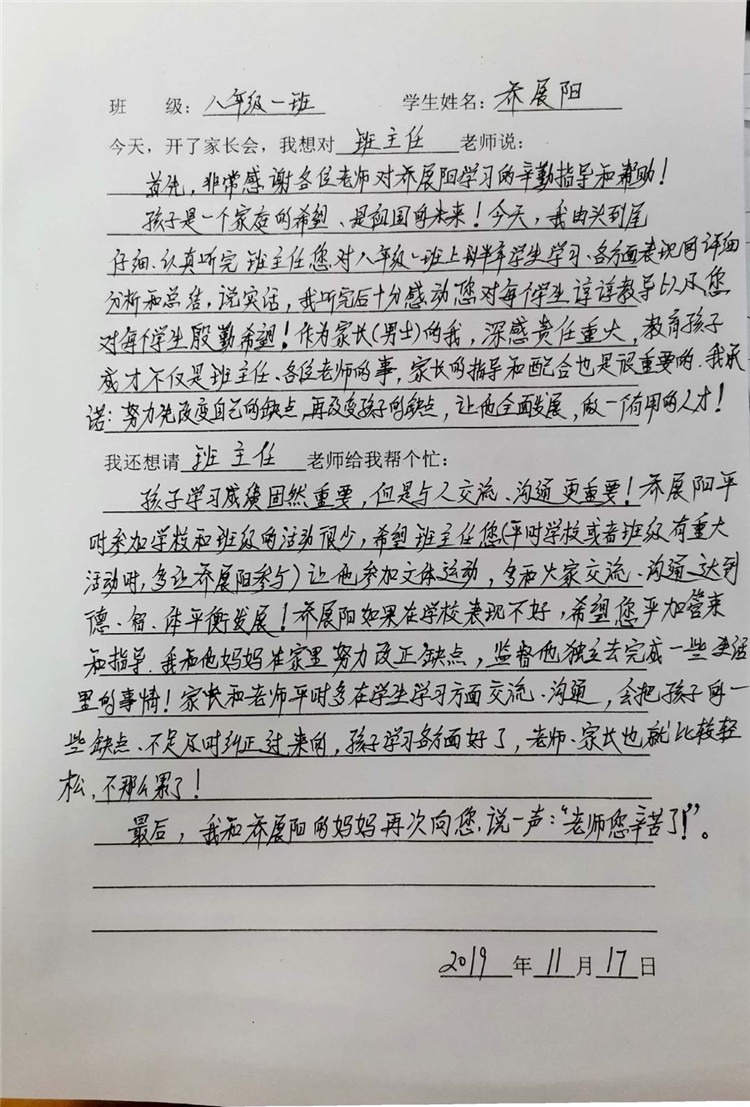 班 级：八年级一班 学生姓名：乔展阳
今天，开了家长会，我想对 班主任 老师说：
首先，非常感谢各位老师对乔展阳学习的辛勤指导和帮助！
孩子是一个家庭的希望、是祖国的未来！今天，我由头到尾
仔细、认真听完班主任您对八年级一班上半年学生学习、各方面表现的详细
分析和总结，说实话，我听完后十分感动您对每个学生谆谆教导以及您
对每个学生殷勤希望！作为家长（男士）的我，深感责任重大，教育孩子
成才不仅是班主任、各位老师的事，家长的指导和配合也是很重要的．我承
诺：努力先改变自己的缺点，再改变孩子的缺点，让他全面发展，做一个有用的人才！
我还想请 班主任 老师给我帮个忙：
孩子学习成绩固然重要，但是与人交流、沟通更重要！乔展阳平
时参加学校和班级的活动很少，希望班主任您（平时学校或者班级有重大
活动时，多让乔展阳参与）让他参加文体运动，多和大家交流、沟通，达到
德、智、体平衡发展！乔展阳如果在学校表现不好，希望您严加管束
和指导．我和他妈妈在家里努力改正缺点，监督他独立去完成一些生活
里的事情！家长和老师平时多在学生学习方面交流、沟通，会把孩子的一
些缺点、不足及时纠正过来的，孩子学习各方面好了，老师、家长也就比较轻
松，不那么累了！
最后，我和乔展阳的妈妈再次向您，说一声：“老师您辛苦了！”。
2019 年 11 月 17 日